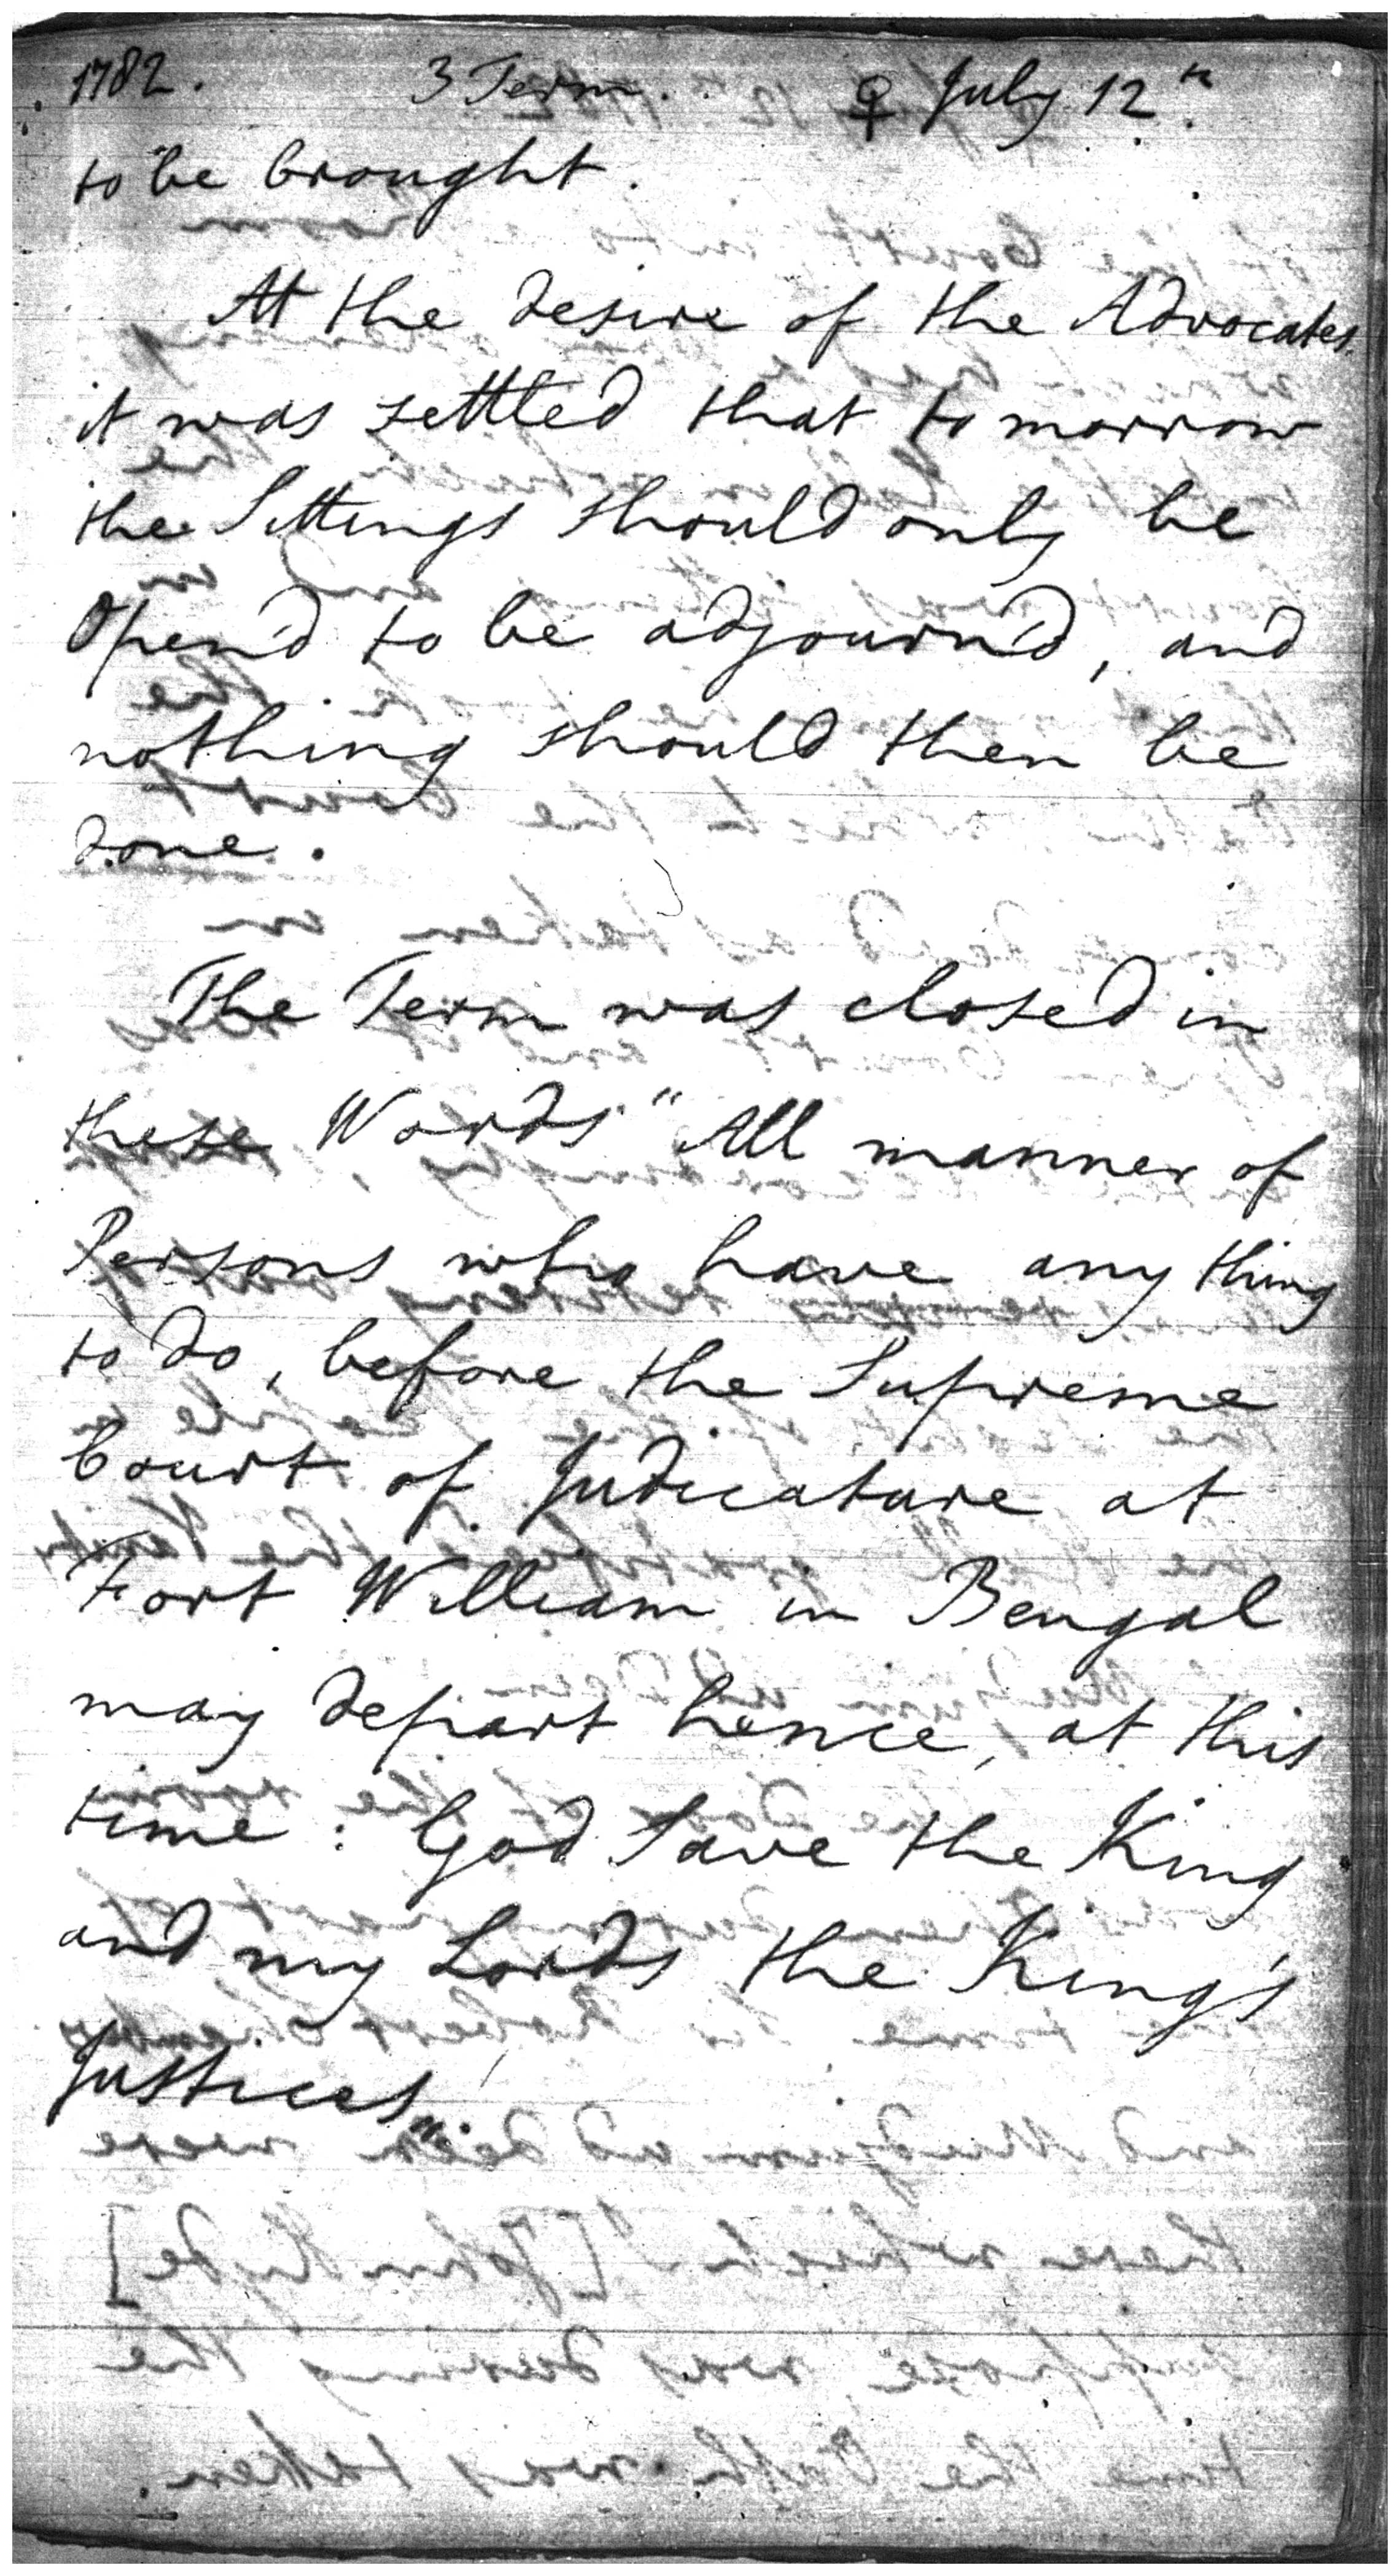 1782. 3 Term. ♀ July 12th.
to be brought.
At the desire of the Advocates
it was settled that to morrow
the Sittings should only be
Open'd to be adjourn'd, and
nothing should then be
done.
The Term was closed in
these Words "All manner of
Persons who have any thing
to do, before the Supreme
Court of Judicature at
Fort William in Bengal
may depart hence, at this
time: God Save the King
and my Lords the King's
Justices".